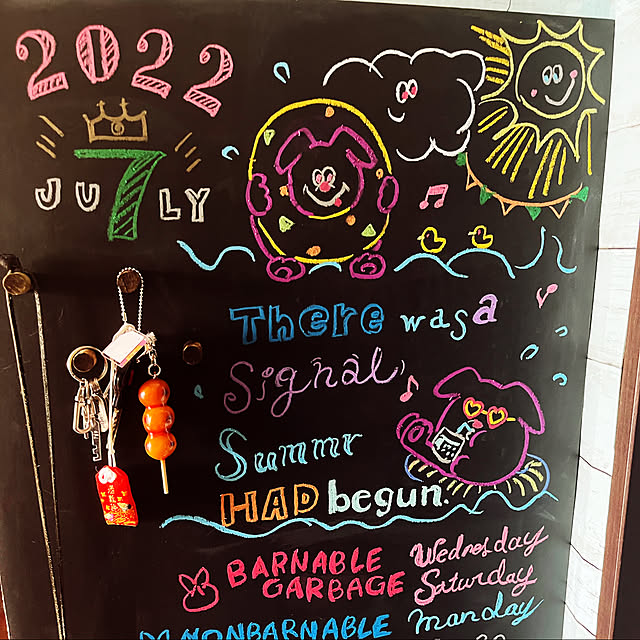 2022
7
JULY
There was a
Signal
Summr
HAD begun.
BARNABLE Wednesday
GARBAGE Saturday
NONBARNABLE Manday